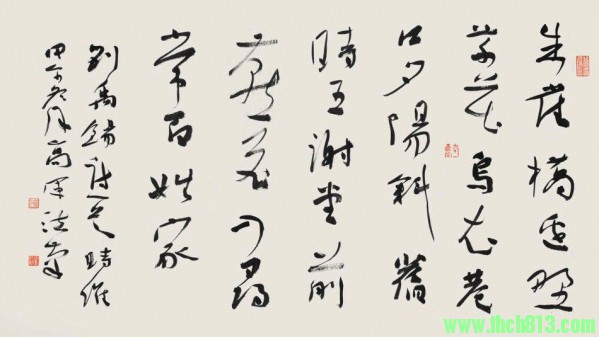 朱雀橋邊野
草花烏衣巷
口夕陽斜舊
時王謝堂前
燕飛入尋
常百姓家
劉禹錫詩 時維
甲午 月高軍
www.thch813.com